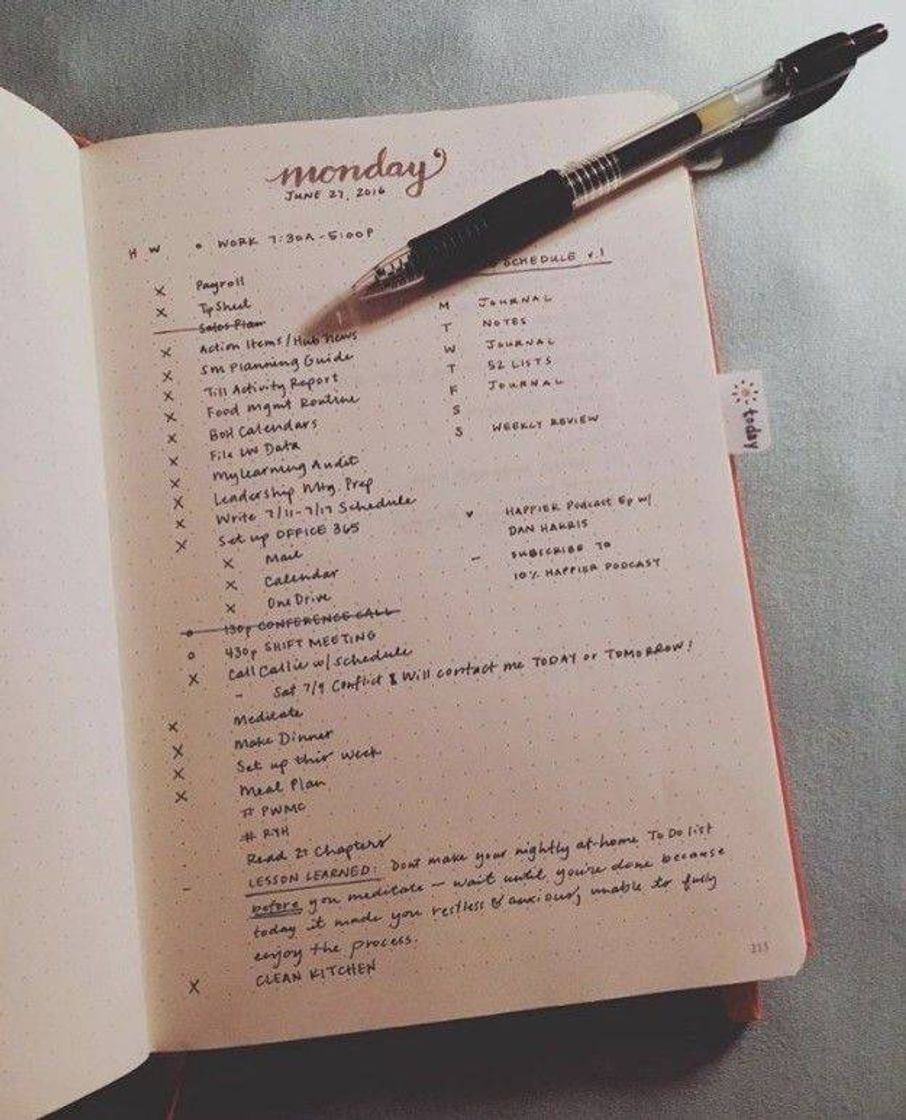 monday
JUNE 27, 2016
H W • WORK 7:30A-5:00P
X Payroll
X Tip Sheet
Sales Plan
X Action Items/Hub News
X SM Planning Guide
X Till Activity Report
X Food Mgmt Routine
X BOH Calendars
X File LW Data
X My Learning Audit
X Leadership Mtg. Prep
X Write 7/11-7/17 Schedule
X Set up OFFICE 365
X Mail
X Calendar
X OneDrive
o 130p CONFERENCE CALL
o 430p SHIFT MEETING
X Call Callie w/ Schedule
- Sat 7/9 Conflict & Will contact me TODAY or TOMORROW!
X Meditate
X Make Dinner
X Set up this week
X Meal Plan
# PWMC
# RYH
- Read 2+ Chapters
- LESSON LEARNED: Dont make your nightly at-home To Do list
before you meditate – wait until you're done because
today it made you restless & anxious, unable to fully
enjoy the process.
X CLEAN KITCHEN
SCHEDULE v.1
M JOURNAL
T NOTES
W JOURNAL
T 52 LISTS
F JOURNAL
S
S WEEKLY REVIEW
♥ HAPPIER Podcast Ep w/
DAN HARRIS
- SUBSCRIBE TO
10% HAPPIER PODCAST
today
213